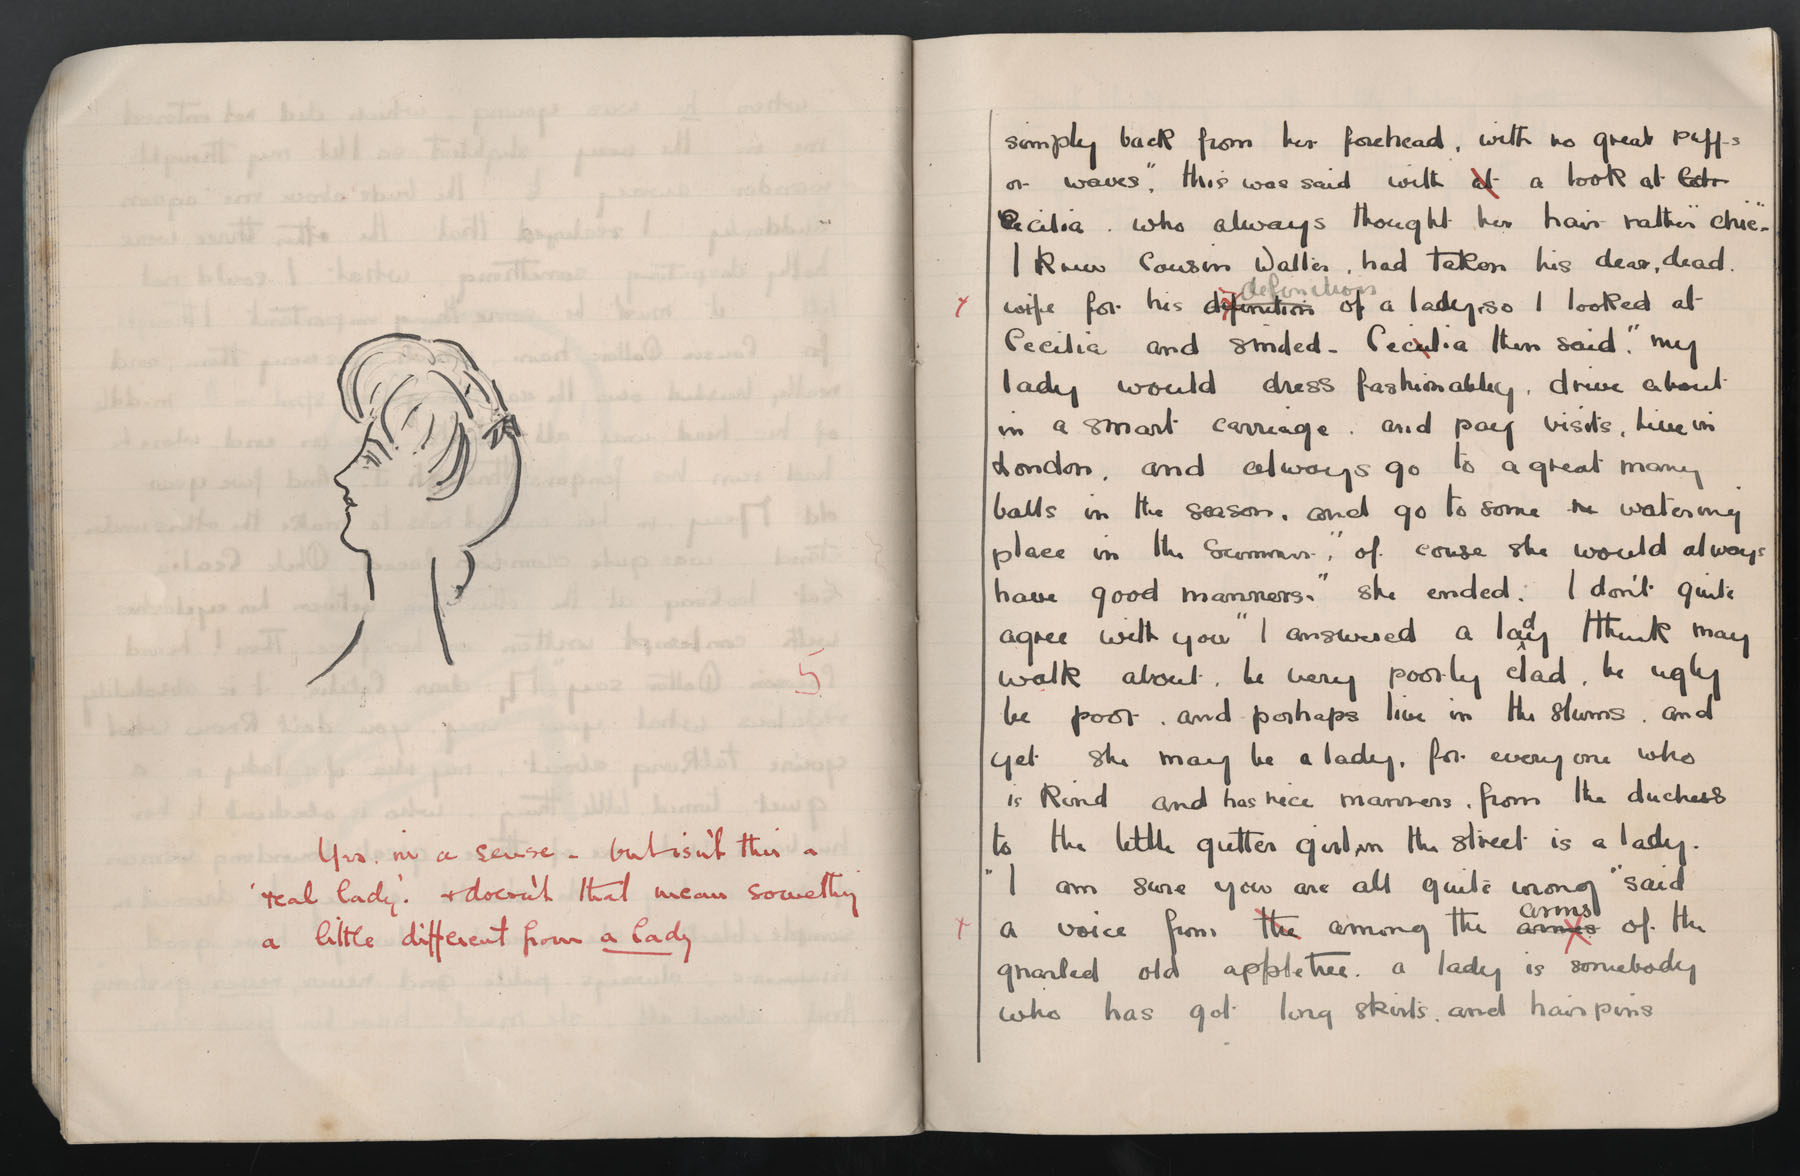 5
Yes. in a sense - but isn't this a
'real lady'. & doesn't that mean something
a little different from a lady
simply back from her forehead, with no great puffs
or waves", this was said with at a look at
Cecilia. who always thought her hair rather "chic"-
I knew Cousin Walter, had taken his dear, dead.
definition
wife for his difinition of a lady, so I looked at
Cecilia and smiled - Cecilia then said." my
lady would dress fashionabley, drive about
in a smart carriage. and pay visits, live in
London, and always go to a great many
balls in the season, and go to some watering
place in the Summer", of couse she would always
have good manners." she ended. I don't quite
agree with you" I answered a lady I think may
walk about, be very poorly clad, be ugly
be poor. and perhaps live in the slums. and
yet she may be a lady, for every one who
is kind and has nice manners, from the duchess
to the little gutter girl in the street is a lady.
"I am sure you are all quite wrong" said
arms
a voice from the among the armes of the
gnarled old appletree. a lady is somebody
who has got long skirts. and hairpins